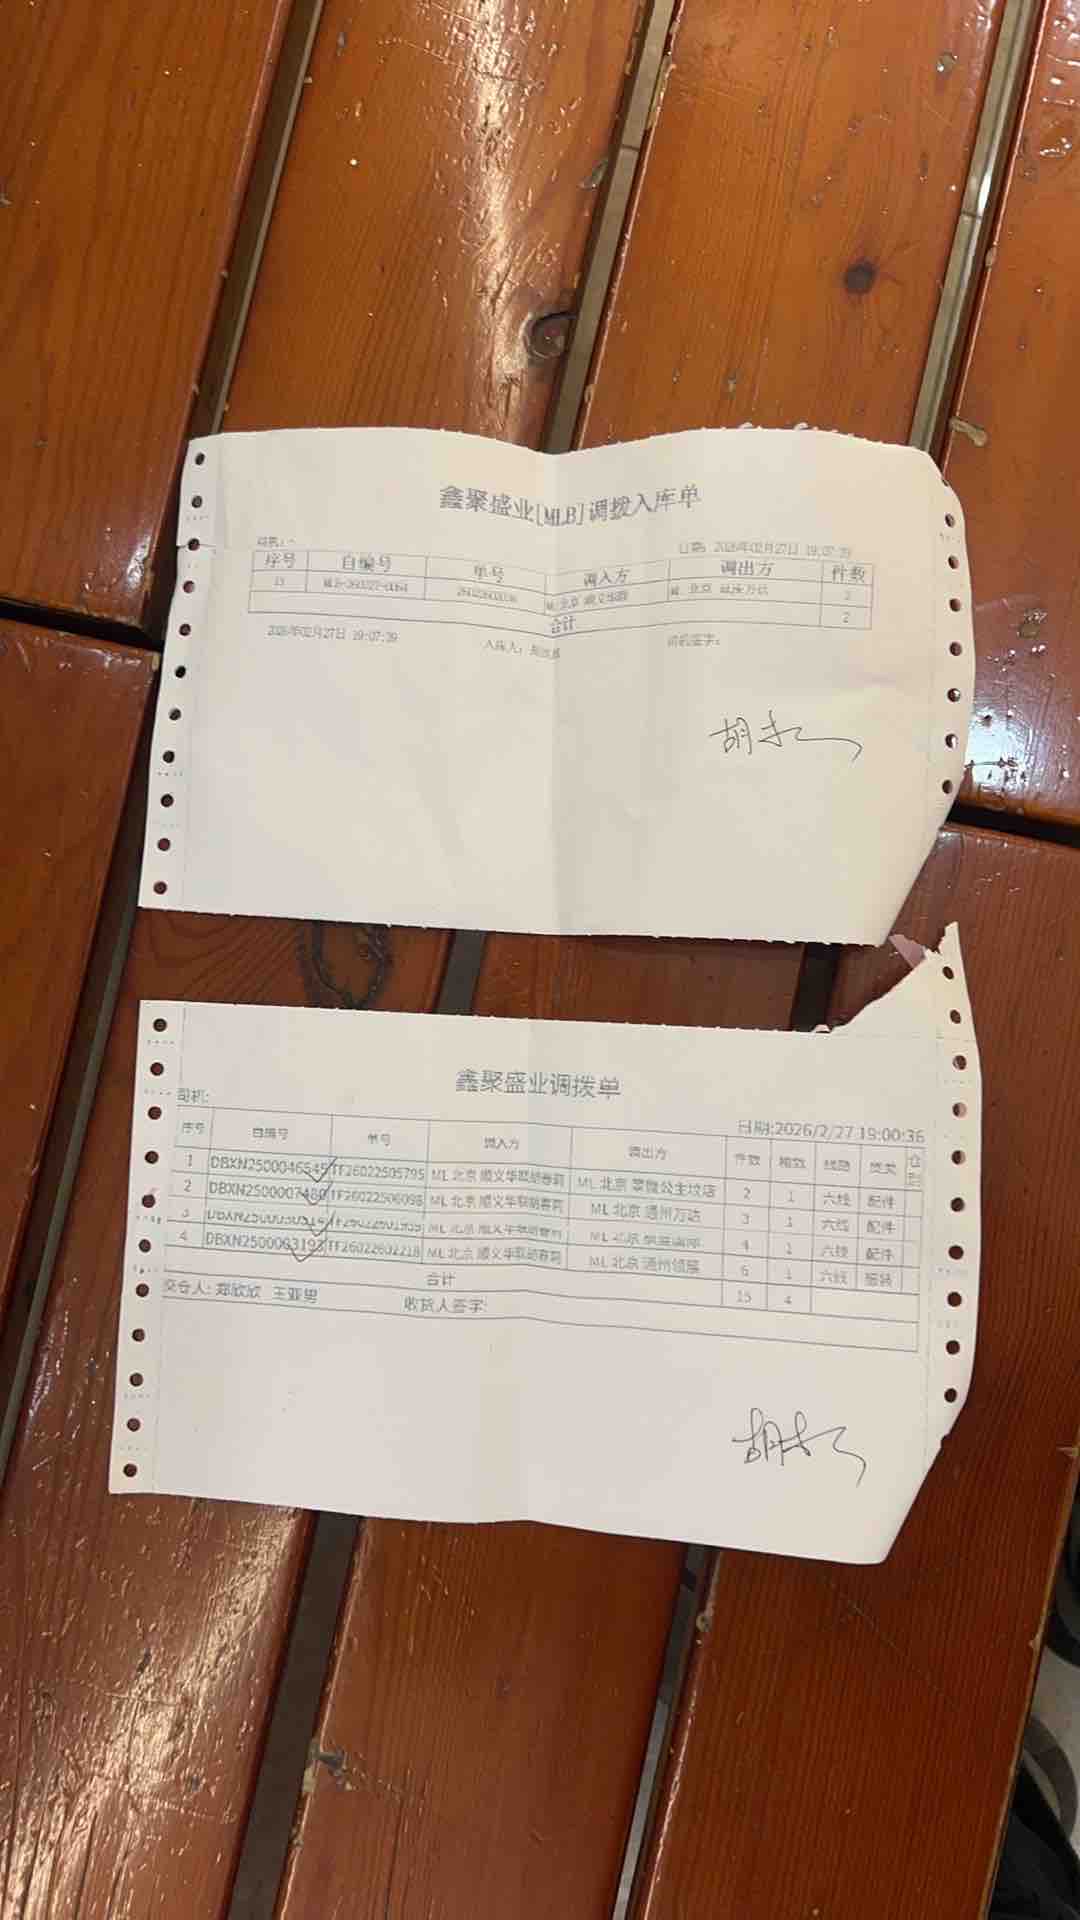 鑫聚盛业[MLB]调拨入库单
司机: 日期: 2026年02月27日 19:07:39
序号 自编号 单号 调入方 调出方 件数
ML 北京 顺义华联 ML 北京 万达 2
合计 2
2026年02月27日 19:07:39 入库人: 司机签字:
胡
鑫聚盛业调拨单
司机: 日期:2026/2/27 19:00:36
序号 自编号 单号 调入方 调出方 件数 箱数 线路 货类
1 DBXN2500046545 TF26022505795 ML 北京 顺义华联胡春莉 ML 北京 翠微公主坟店 2 1 六线 配件
2 DBXN2500007480 TF26022506098 ML 北京 顺义华联胡春莉 ML 北京 通州万达 3 1 六线 配件
3 ML 北京 顺义华联胡春莉 ML 北京 4 1 六线 配件
4 DBXN2500003193 TF26022602228 ML 北京 顺义华联胡春莉 ML 北京 通州领展 6 1 六线 服装
合计 15 4
交仓人: 郑欣欣 王亚男 收货人签字:
胡